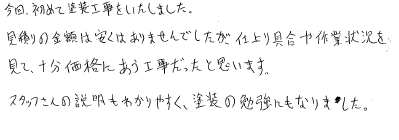 今回、初めて塗装工事をいたしました。
見積りの金額は安くはありませんでしたが仕上り具合や作業状況を
見て、十分価格にあう工事だったと思います。
スタッフさんの説明もわかりやすく、塗装の勉強にもなりました。